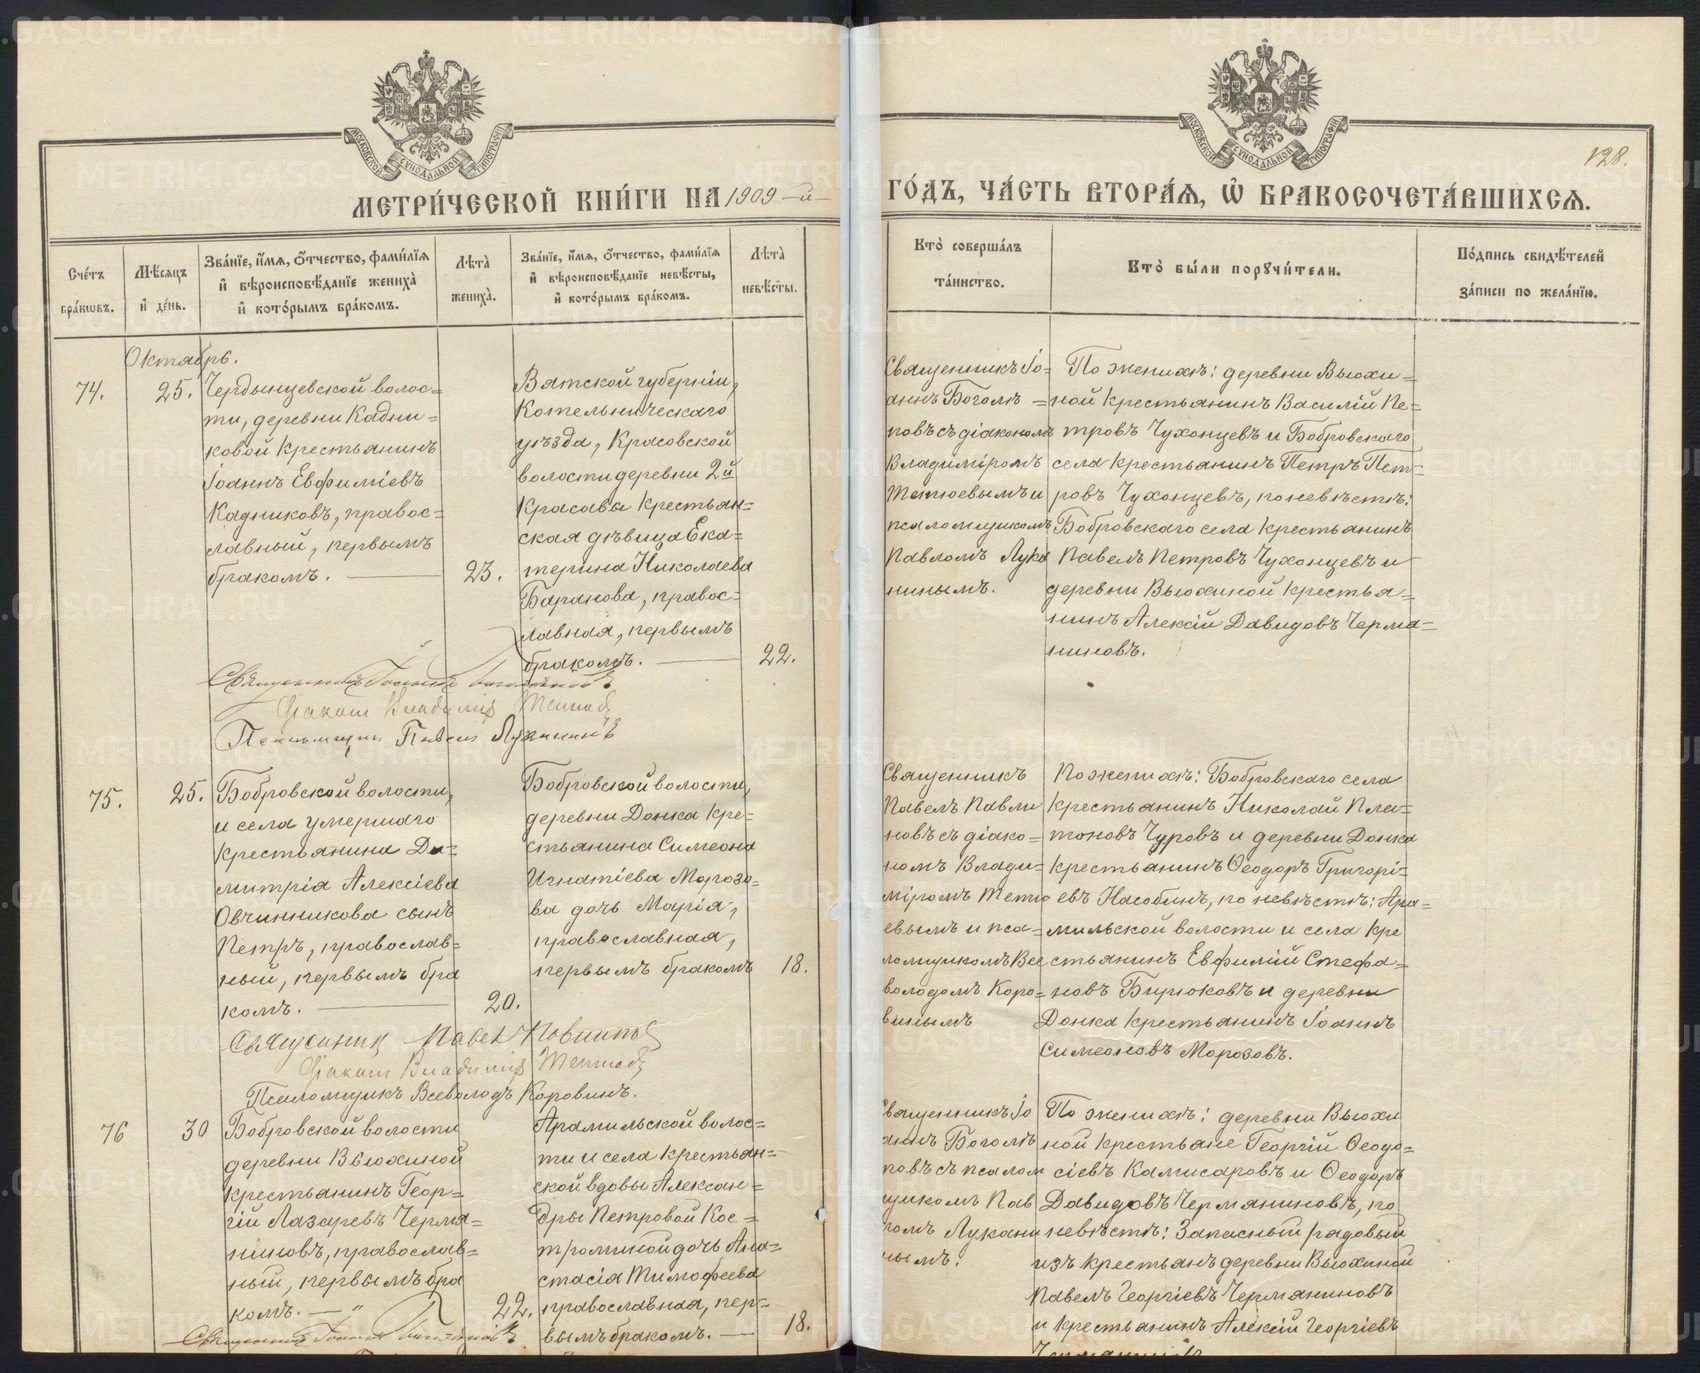 128.
МЕТРИЧЕСКОЙ КНИГИ НА 1909-й
ГОДЪ, ЧАСТЬ ВТОРАЯ, Ѡ БРАКОСОЧЕТАВШИХСЯ.
Счетъ браковъ.
Мѣсяцъ и день.
Званїе, имя, отчество, фамилїя
и вѣроисповѣданїе жениха
и которымъ бракомъ.
Лѣта жениха.
Званїе, имя, отчество, фамилїя
и вѣроисповѣданїе невѣсты,
и которымъ бракомъ.
Лѣта невѣсты.
Кто совершалъ таинство.
Кто были порꙋчители.
Подпись свидѣтелей
записи по желанїю.
Октябрь.
74.
25.
Чердынцевской волос=
ти, деревни Кадни=
ковой крестьянинъ
Іоаннъ Евфиміевъ
Кадниковъ, правос=
славный, первымъ
бракомъ.
23.
Вятской губерніи,
Котельническаго
уѣзда, Красовской
волости деревни 2й
Красавы крестьян=
ская дѣвица Ека=
терина Николаева
Баранова, правос=
лавная, первымъ
бракомъ.
22.
Священникъ Іо=
аннъ Боголѣ=
повъ съ діакономъ
Владиміромъ
Тетюевымъ и
псаломщикомъ
Павломъ Лука
нинымъ.
По женихѣ: деревни Вьюхи=
ной крестьянинъ Василій Пе=
тровъ Чухонцевъ и Бобровскаго
села крестьянинъ Петръ Пет=
ровъ Чухонцевъ, по невѣстѣ:
Бобровскаго села крестьянинъ
Павелъ Петровъ Чухонцевъ и
деревни Вьюхиной крестья=
нинъ Алексій Давидовъ Черма=
ниновъ.
Священникъ Іоаннъ Боголѣповъ
Діаконъ Владиміръ Тетюевъ
Псаломщикъ Павелъ Луканинъ
75.
25.
Бобровской волости,
и села умершаго
крестьянина Ди=
митрія Алексіева
Овчинникова сынъ
Петръ, православ=
ный, первымъ бра
комъ.
20.
Бобровской волости,
деревни Донка кре=
стьянина Симеона
Игнатіева Морозо=
ва дочь Марія,
православная,
первымъ бракомъ
18.
Священникъ
Павелъ Павли
новъ съ діако=
номъ Влади=
міромъ Тетю
евымъ и пса=
ломщикомъ Все
володомъ Коро=
винымъ
По женихѣ: Бобровскаго села
крестьянинъ Николай Пла=
тоновъ Чуровъ и деревни Донка
крестьянинъ Ѳеодоръ Григорі=
евъ Насобинъ, по невѣстѣ: Ара=
мильской волости и села кре
стьянинъ Евфимій Стефа=
новъ Бирюковъ и деревни
Донка крестьянинъ Іоаннъ
Симеоновъ Морозовъ.
Священникъ Павелъ Павлиновъ
Діаконъ Владиміръ Тетюевъ
Псаломщикъ Всеволодъ Коровинъ.
76
30
Бобровской волости
деревни Вьюхиной
крестьянинъ Геор=
гій Лазаревъ Черма=
ниновъ, православ=
ный, первымъ бра
комъ.
22.
Арамильской волос=
ти и села крестьян=
ской вдовы Алексан=
дры Петровой Кос=
троминой дочь Ана=
стасія Тимофеева
православная, пер=
вымъ бракомъ.
18.
Священникъ Іо
аннъ Боголѣ
повъ съ псалом
щикомъ Пав
ломъ Лукани
нымъ.
По женихѣ: деревни Вьюхи
ной крестьяне Георгій Ѳеодо=
сіевъ Камисаровъ и Ѳеодоръ
Давидовъ Черманиновъ, по
невѣстѣ: Запасный рядовый
изъ крестьянъ деревни Вьюхиной
Павелъ Георгіевъ Черманиновъ
и крестьянинъ Алексій Георгіевъ
Черманиновъ
Священникъ Іоаннъ Боголѣповъ